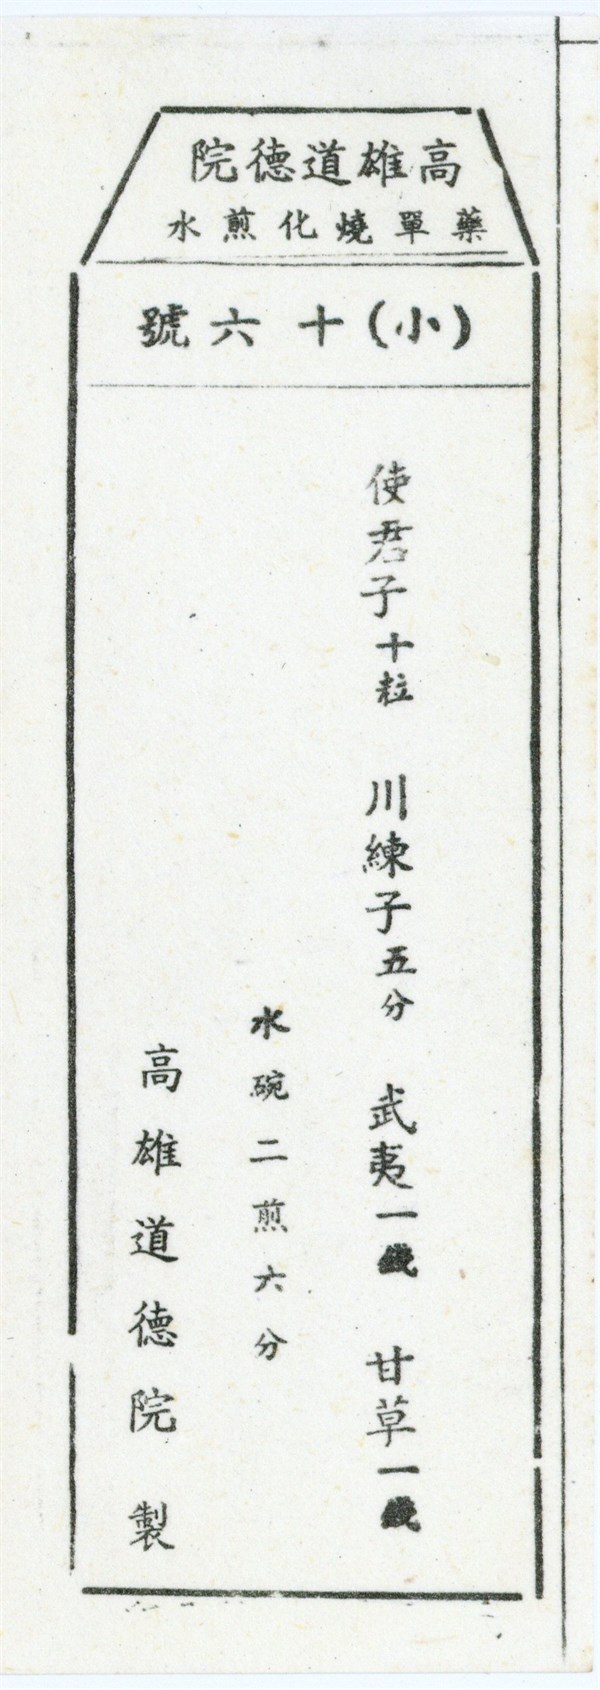 高雄道德院
藥單燒化煎水
(小)十六號
使君子十粒 川練子五分 武夷一錢 甘草一錢
水碗二煎六分
高雄道德院 製